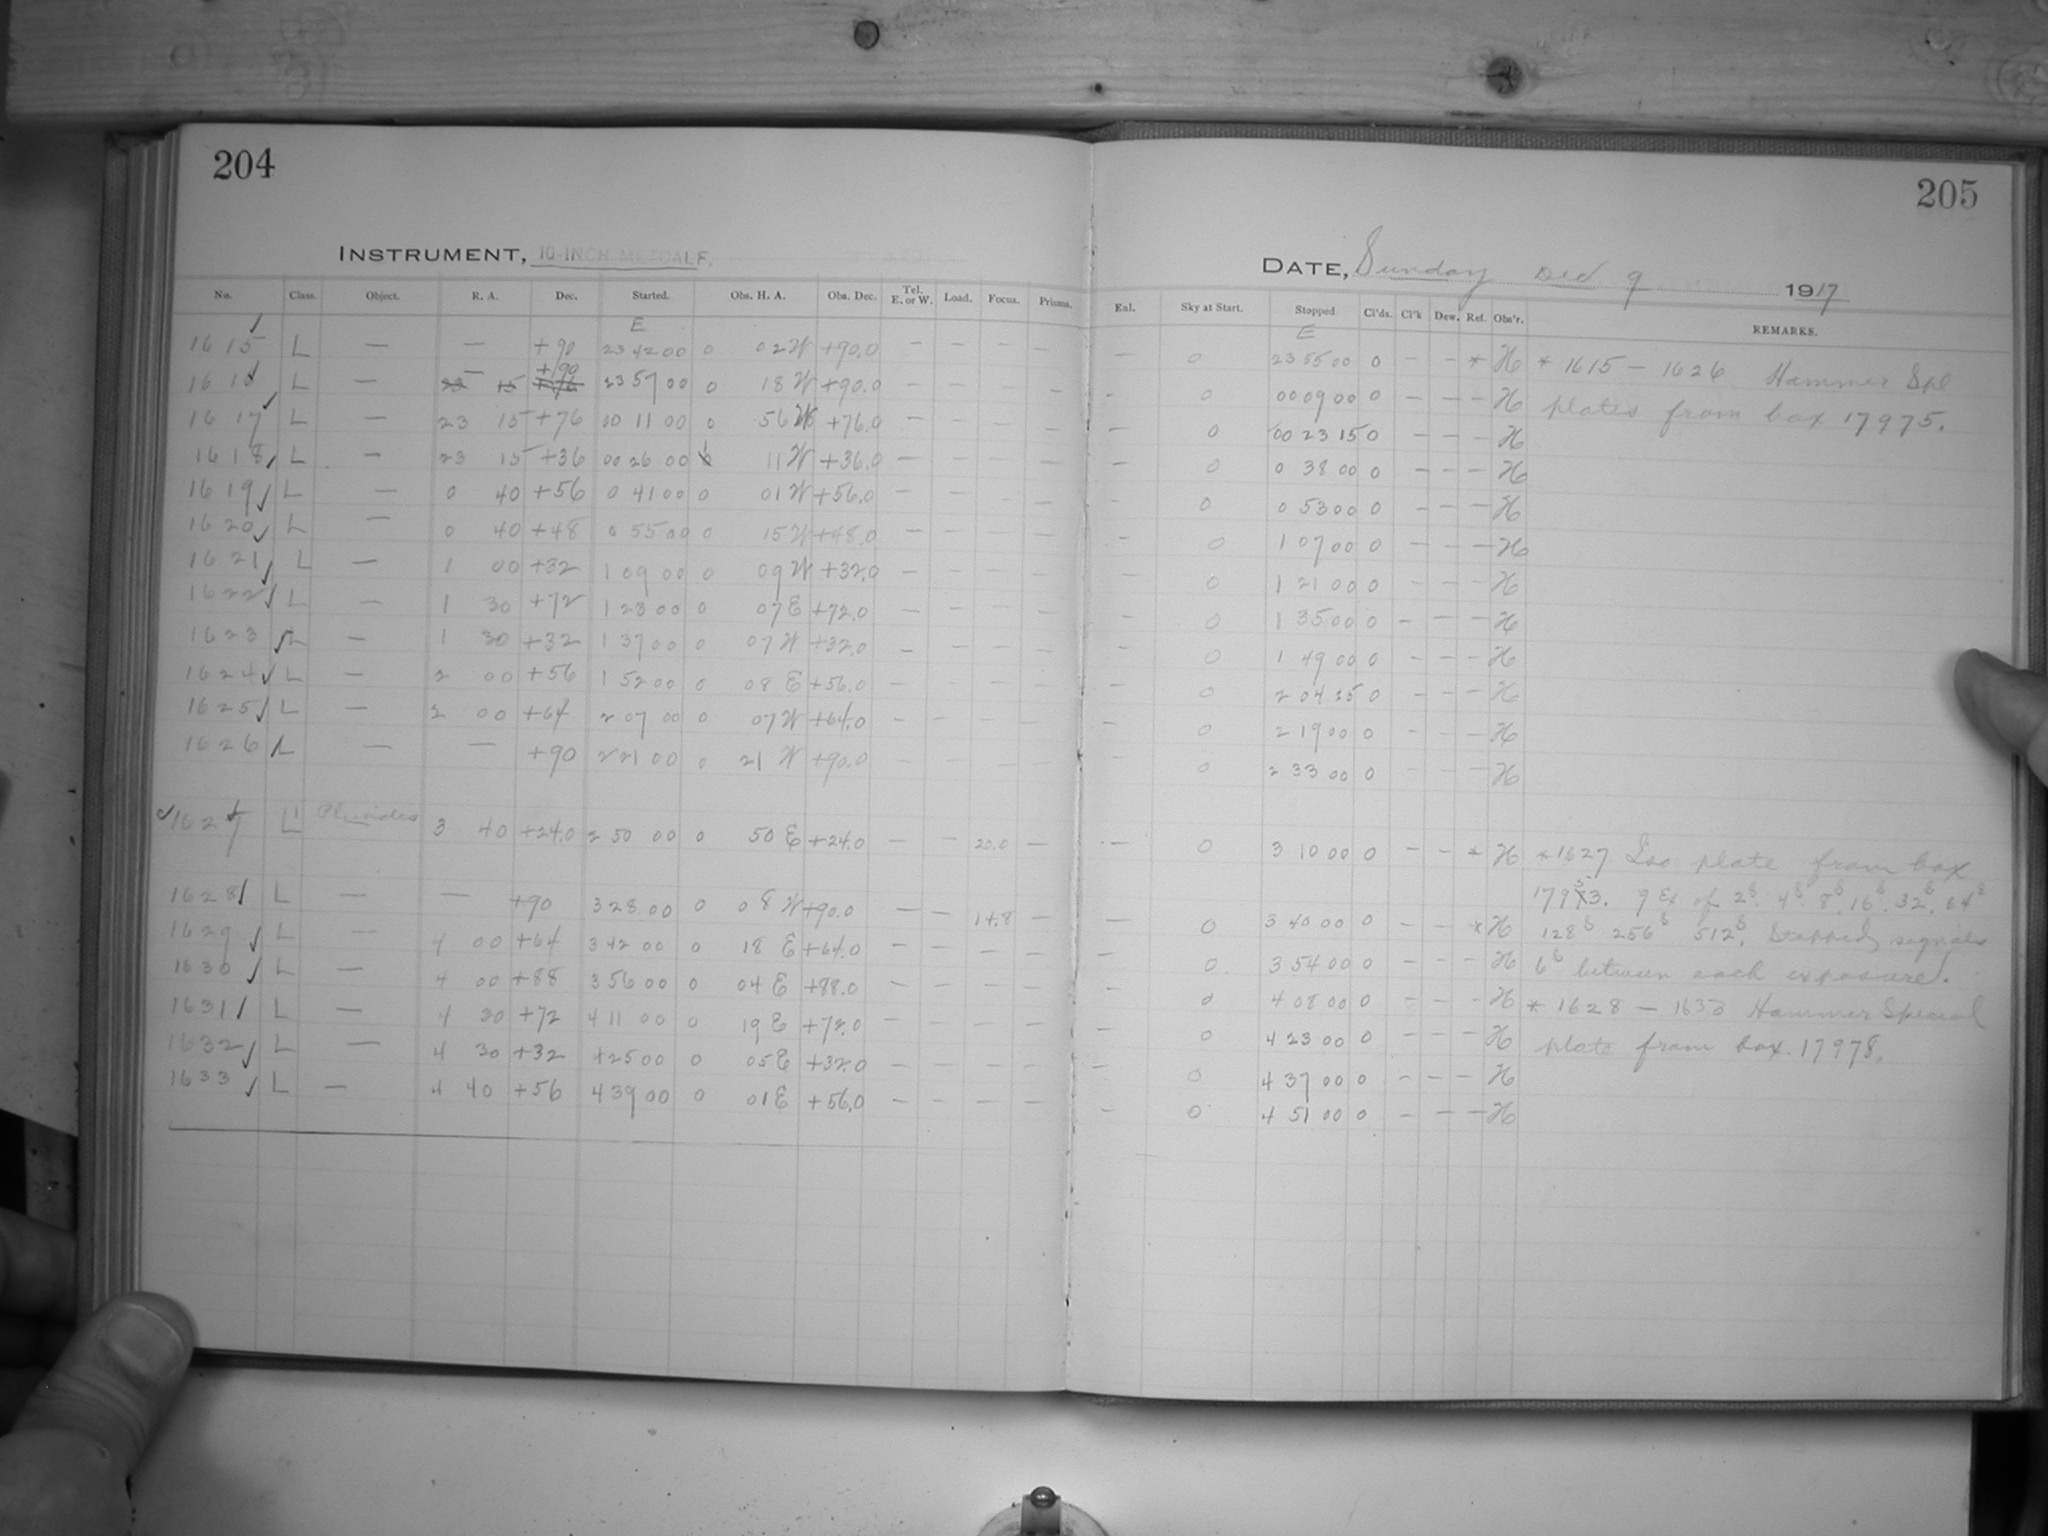 204
205
INSTRUMENT, 10-INCH METCALF.
DATE, Sunday Dec 9 1917
No. Class. Object. R. A. Dec. Started. Obs. H. A. Obs. Dec. Tel. E. or W. Load. Focus. Prisms. Enl. Sky at Start. Stopped. Cl'ds. Cl'k Dew. Ref. Obs'r. REMARKS.
E E
1615 L — — +90 23 42 00 0 02 W +90.0 — — — — — 0 23 55 00 0 — — * H * 1615 — 1626 Hammer Spl
— +90
1616 L — 23 15 +76 23 57 00 0 18 W +90.0 — — — - 0 00 09 00 0 — — — H plates from box 17975.
1617 L — 23 15 +76 00 11 00 0 56 W +76.0 — — — — — 0 00 23 15 0 — — — H
1618 L — 23 15 +36 00 26 00 1 11 W +36.0 — — — — — 0 0 38 00 0 — — — H
1619 L — 0 40 +56 0 41 00 0 01 W +56.0 — — — — — 0 0 53 00 0 — — — H
1620 L — 0 40 +48 0 55 00 0 15 W +48.0 — — — — — 0 1 07 00 0 — — — H
1621 L — 1 00 +32 1 09 00 0 09 W +32.0 — — — — — 0 1 21 00 0 — — — H
1622 L — 1 30 +72 1 23 00 0 07 E +72.0 — — — — — 0 1 35 00 0 — — — H
1623 L — 1 30 +32 1 37 00 0 07 W +32.0 — — — — — 0 1 49 00 0 — — — H
1624 L — 2 00 +56 1 52 00 0 08 E +56.0 — — — — — 0 2 04 15 0 — — — H
1625 L — 2 00 +64 2 07 00 0 07 W +64.0 — — — — — 0 2 19 00 0 — — — H
1626 L — — +90 2 21 00 0 21 W +90.0 — — — — — 0 2 33 00 0 — — — H
1627 L' Pleiades 3 40 +24.0 2 50 00 0 50 E +24.0 — — 20.0 — — 0 3 10 00 0 — — * H *1627 Iso plate from box
17953. 9 Ex of 2s. 4s. 8s. 16s. 32s. 64s
1628 L — — +90 3 28 00 0 08 W +90.0 — — 14.8 — — 0 3 40 00 0 — — * H 128s 256s 512s. Stopped signals
1629 L — 4 00 +64 3 42 00 0 18 E +64.0 — — — — — 0 3 54 00 0 — — — H 6s between each exposure.
1630 L — 4 00 +88 3 56 00 0 04 E +88.0 — — — — — 0 4 08 00 0 — — — H * 1628 — 1633 Hammer Special
1631 L — 4 30 +72 4 11 00 0 19 E +72.0 — — — — — 0 4 23 00 0 — — — H plate from box. 17978.
1632 L — 4 30 +32 4 25 00 0 05 E +32.0 — — — — — 0 4 37 00 0 — — — H
1633 L — 4 40 +56 4 39 00 0 01 E +56.0 — — — — — 0 4 51 00 0 — — — H